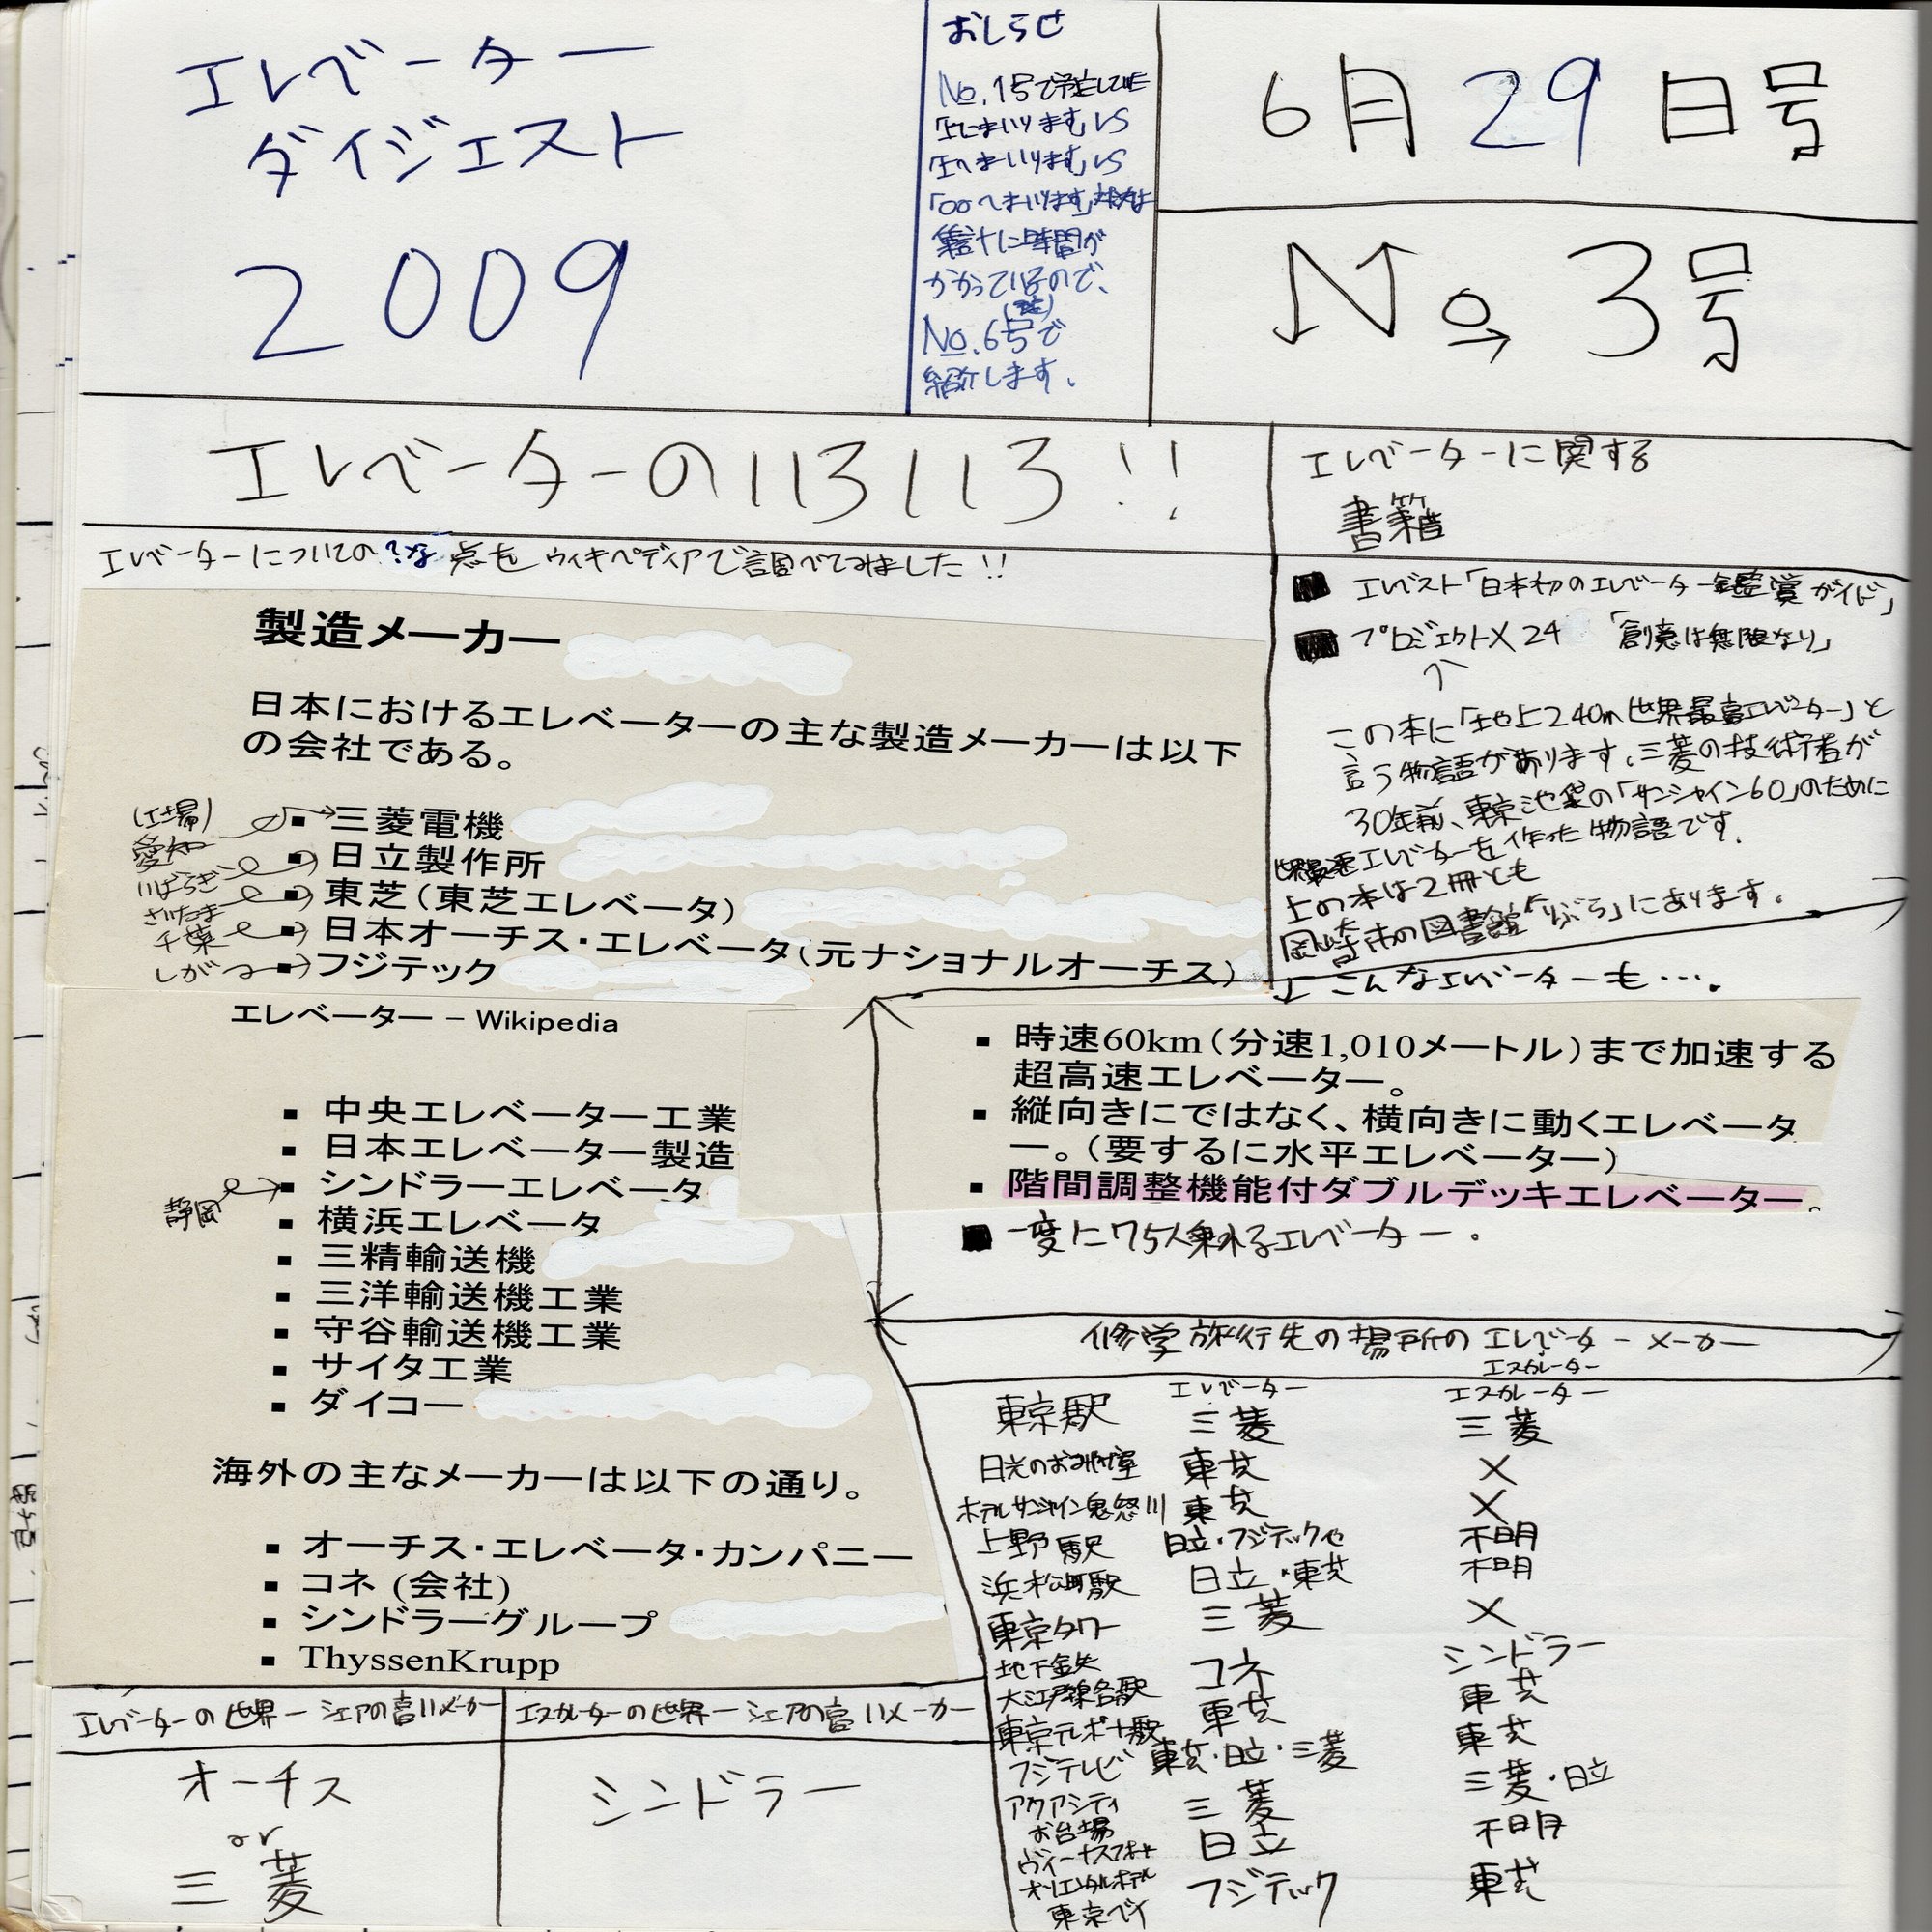 エレベーター
ダイジェスト
2009
おしらせ
No.1号で予定していた
「上にまいります」VS
「上へまいります」VS
「○○へまいります」対決は
集計に時間が
かかっているので、
No.6号で
紹介します。
6月29日号
No.3号
エレベーターのいろいろ!!
エレベーターについての?な点をウィキペディアで調べてみました!!
製造メーカー
日本におけるエレベーターの主な製造メーカーは以下
の会社である。
(工場)
愛知
▪ 三菱電機
いばらぎ
▪ 日立製作所
さいたま
▪ 東芝(東芝エレベータ)
千葉
▪ 日本オーチス・エレベータ(元ナショナルオーチス)
しが
▪ フジテック
エレベーター – Wikipedia
▪ 中央エレベーター工業
▪ 日本エレベーター製造
静岡
▪ シンドラーエレベータ
▪ 横浜エレベータ
▪ 三精輸送機
▪ 三洋輸送機工業
▪ 守谷輸送機工業
▪ サイタ工業
▪ ダイコー
海外の主なメーカーは以下の通り。
▪ オーチス・エレベータ・カンパニー
▪ コネ (会社)
▪ シンドラーグループ
▪ ThyssenKrupp
エレベーターに関する
書籍
■ エレベスト「日本初のエレベーター鑑賞ガイド」
■ プロジェクトX 24 「創意は無限なり」
↑
この本に「地上240m世界最高エレベーター」と
言う物語があります。三菱の技術者が
30年前、東京池袋の「サンシャイン60」のために
世界最速エレベーターを作った物語です。
上の本は2冊とも
岡崎市の図書館「りぶら」にあります。
↓こんなエレベーターも….
▪ 時速60km(分速1,010メートル)まで加速する
超高速エレベーター。
▪ 縦向きにではなく、横向きに動くエレベータ
ー。(要するに水平エレベーター)
▪ 階間調整機能付ダブルデッキエレベーター。
■ 一度に75人乗れるエレベーター。
修学旅行先の場所のエレベーターメーカー
エスカレーター
エレベーター エスカレーター
東京駅 三菱 三菱
日光のおみやげ屋 東芝 ×
ホテルサンシャイン鬼怒川 東芝 ×
上野駅 日立・フジテック他 不明
浜松町駅 日立・東芝 不明
東京タワー 三菱 ×
地下鉄
大江戸線各駅 コネ シンドラー
東京テレポート駅 東芝 東芝
フジテレビ 東芝・日立・三菱 東芝
アクアシティ
お台場 三菱 三菱・日立
ヴィーナスフォート 日立 不明
オリエンタルホテル
東京ベイ フジテック 東芝
エレベーターの世界一シェアの高いメーカー
オーチス
or
三菱
エスカレーターの世界一シェアの高いメーカー
シンドラー